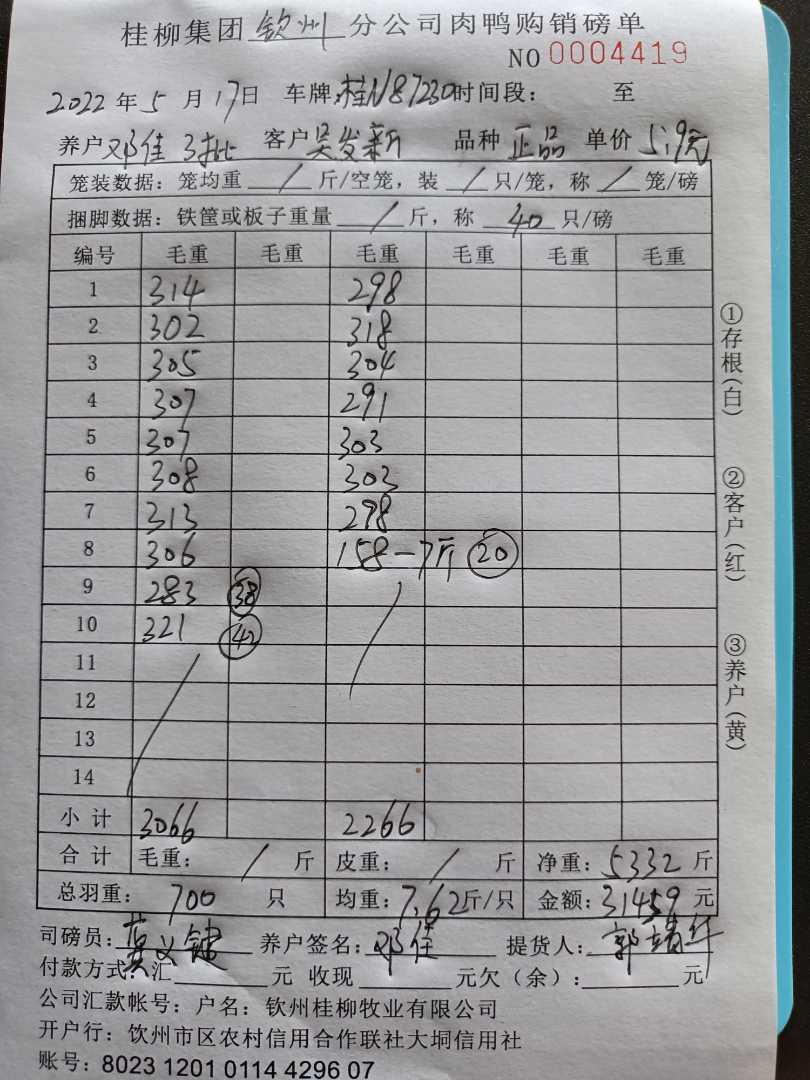 桂柳集团 钦州 分公司肉鸭购销磅单
NO 0004419
2022年5月17日 车牌:桂N87230时间段: 至
养户邓佳 3批 客户吴发新 品种 正品 单价 5.9元
笼装数据:笼均重 / 斤/空笼,装 / 只/笼,称 / 笼/磅
捆脚数据:铁筐或板子重量 / 斤,称 40 只/磅
编号 毛重 毛重 毛重 毛重 毛重 毛重
1 314 298
2 302 318
3 305 304
4 307 291
5 307 303
6 308 303
7 313 298
8 306 158-7斤 20
9 283 38
10 321 42
11
12
13
14
小计 3066 2266
合计 毛重: / 斤 皮重: / 斤 净重:5332斤
总羽重:700 只 均重:7.62斤/只 金额:31459元
司磅员: 养户签名:邓佳 提货人:郭靖华
付款方式:汇 元 收现 元欠(余): 元
公司汇款帐号:户名:钦州桂柳牧业有限公司
开户行:钦州市区农村信用合作联社大垌信用社
账号:8023 1201 0114 4296 07
①存根(白)
②客户(红)
③养户(黄)